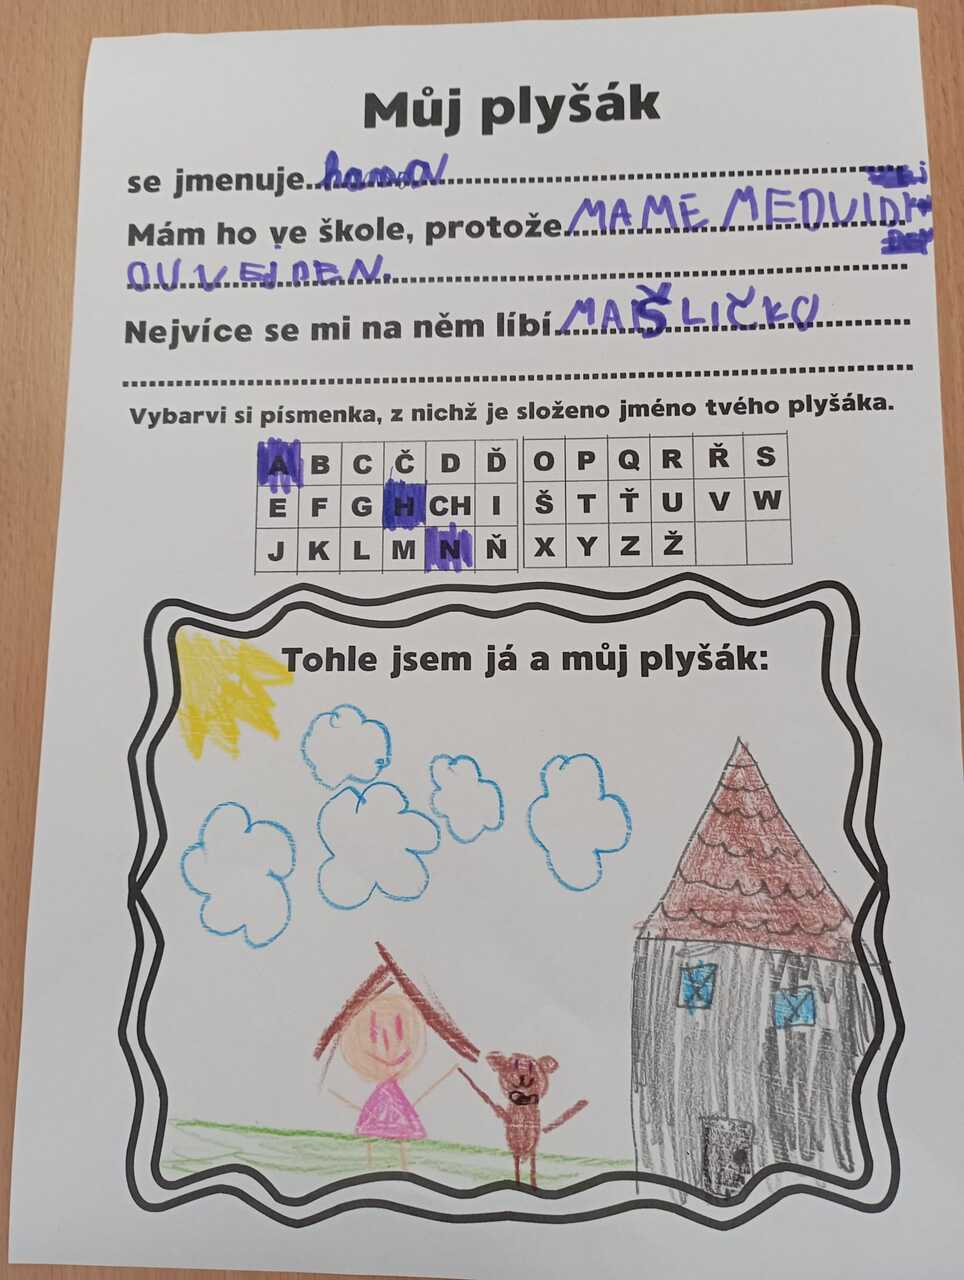 Můj plyšák
se jmenuje hana
Mám ho ve škole, protože MAME MEDVIDK
OUVEJ DEN.
Nejvíce se mi na něm líbí MAŠLIČKO
Vybarvi si písmenka, z nichž je složeno jméno tvého plyšáka.
A B C Č D Ď O P Q R Ř S
E F G H CH I Š T Ť U V W
J K L M N Ň X Y Z Ž
Tohle jsem já a můj plyšák: